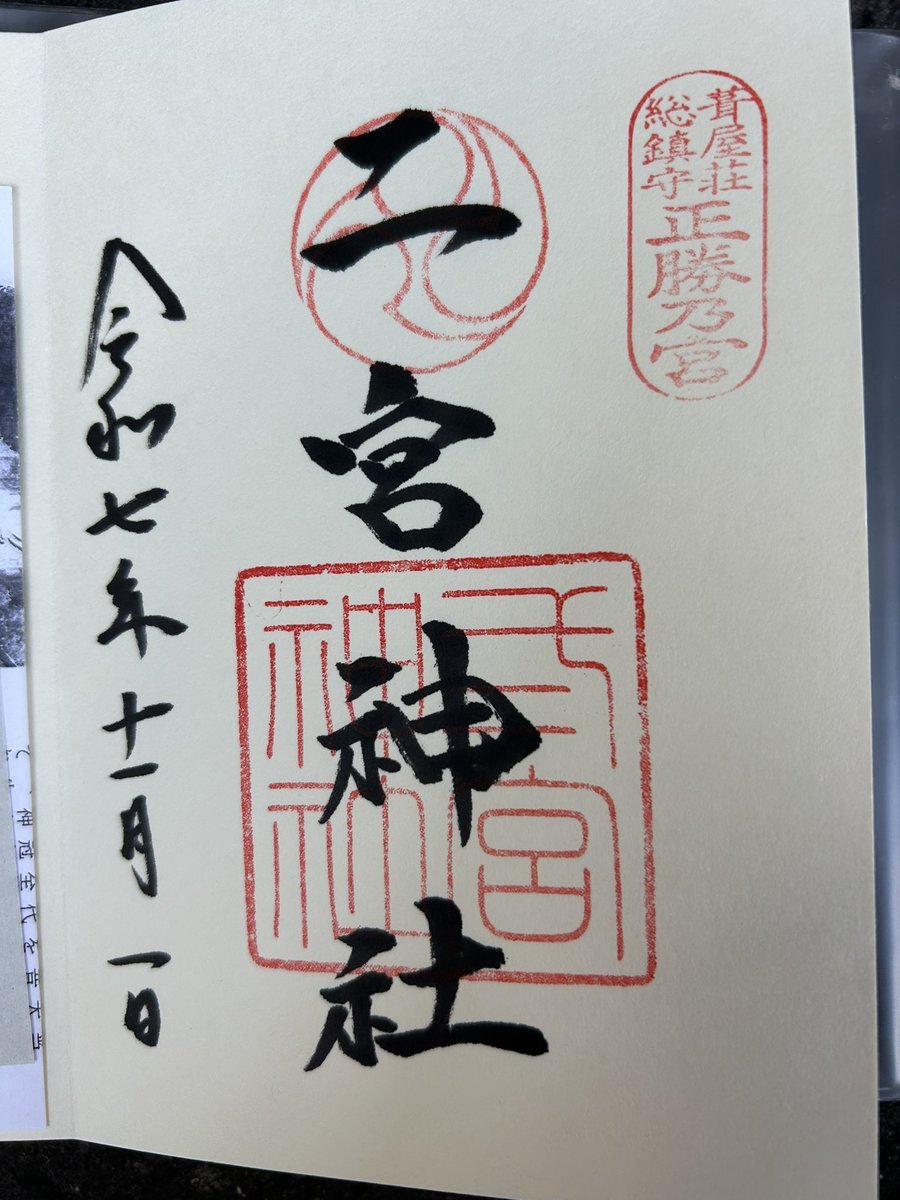 葺屋荘
総鎮守
正勝乃宮
二宮神社
弍宮
神社
令和七年十一月一日